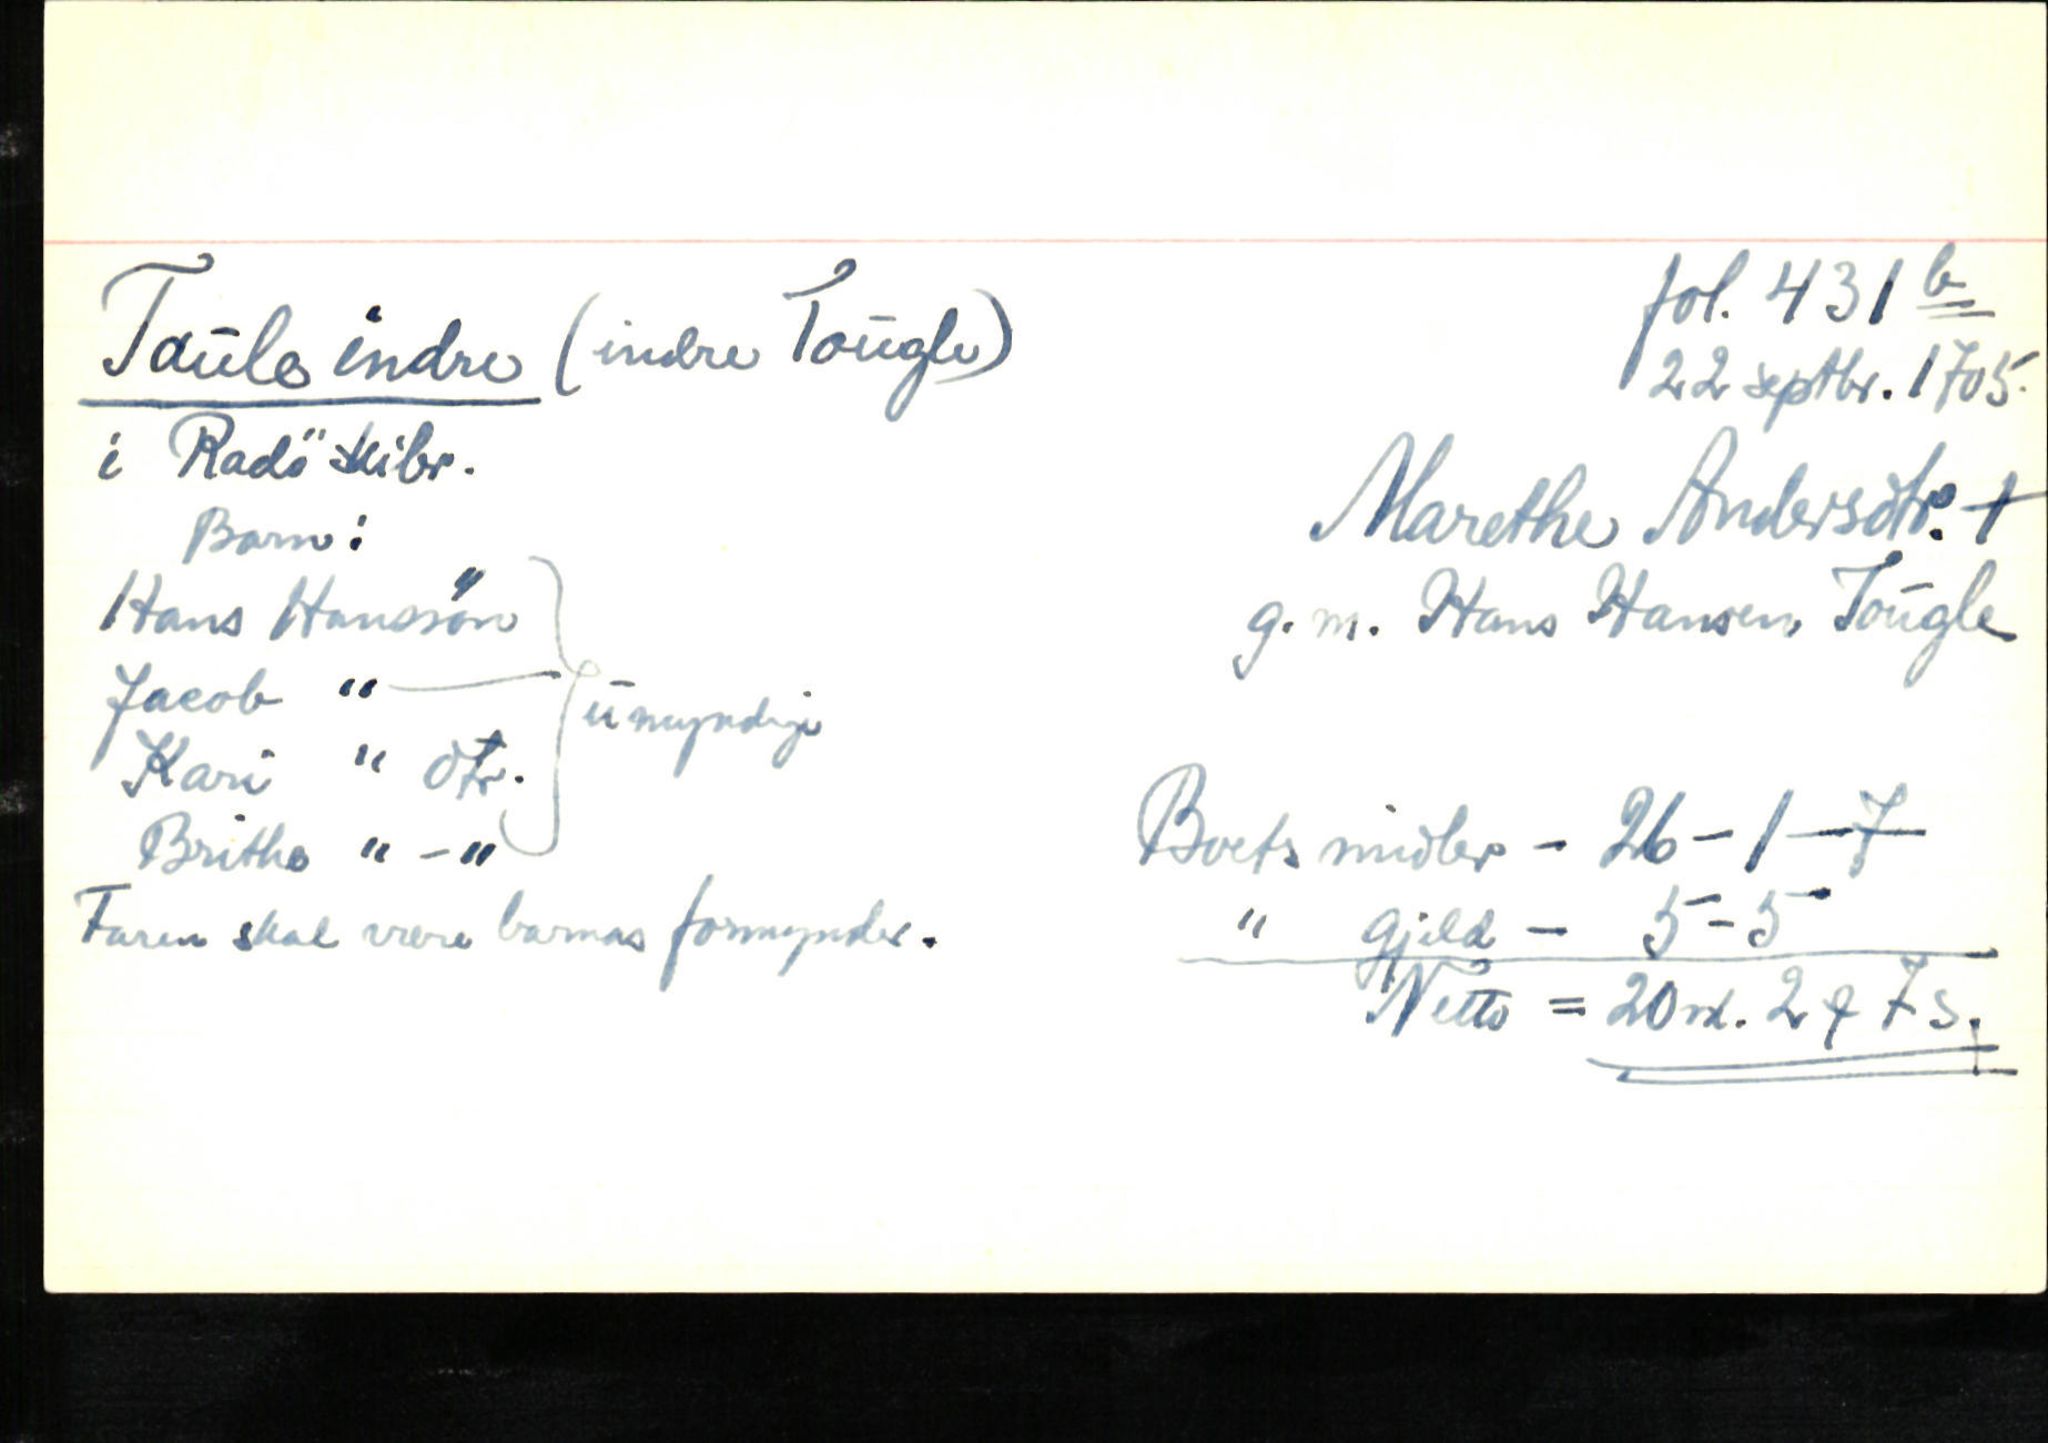 Taule indre (indre Tougle)
i Radö skibr.
Barn:
Hans Hanssön
Jacob "
Kari " dtr.
Brithe " - "
umyndige
Faren skal være barnas formynder.
fol. 431 b
22 septbr. 1705.
Marethe Andersdtr. †
g. m. Hans Hansen Tougle
Boets midler - 26 - 1 - 7
" Gjeld - 5 - 5 -
Netto = 20 rd. 2 ƒ 7 s.